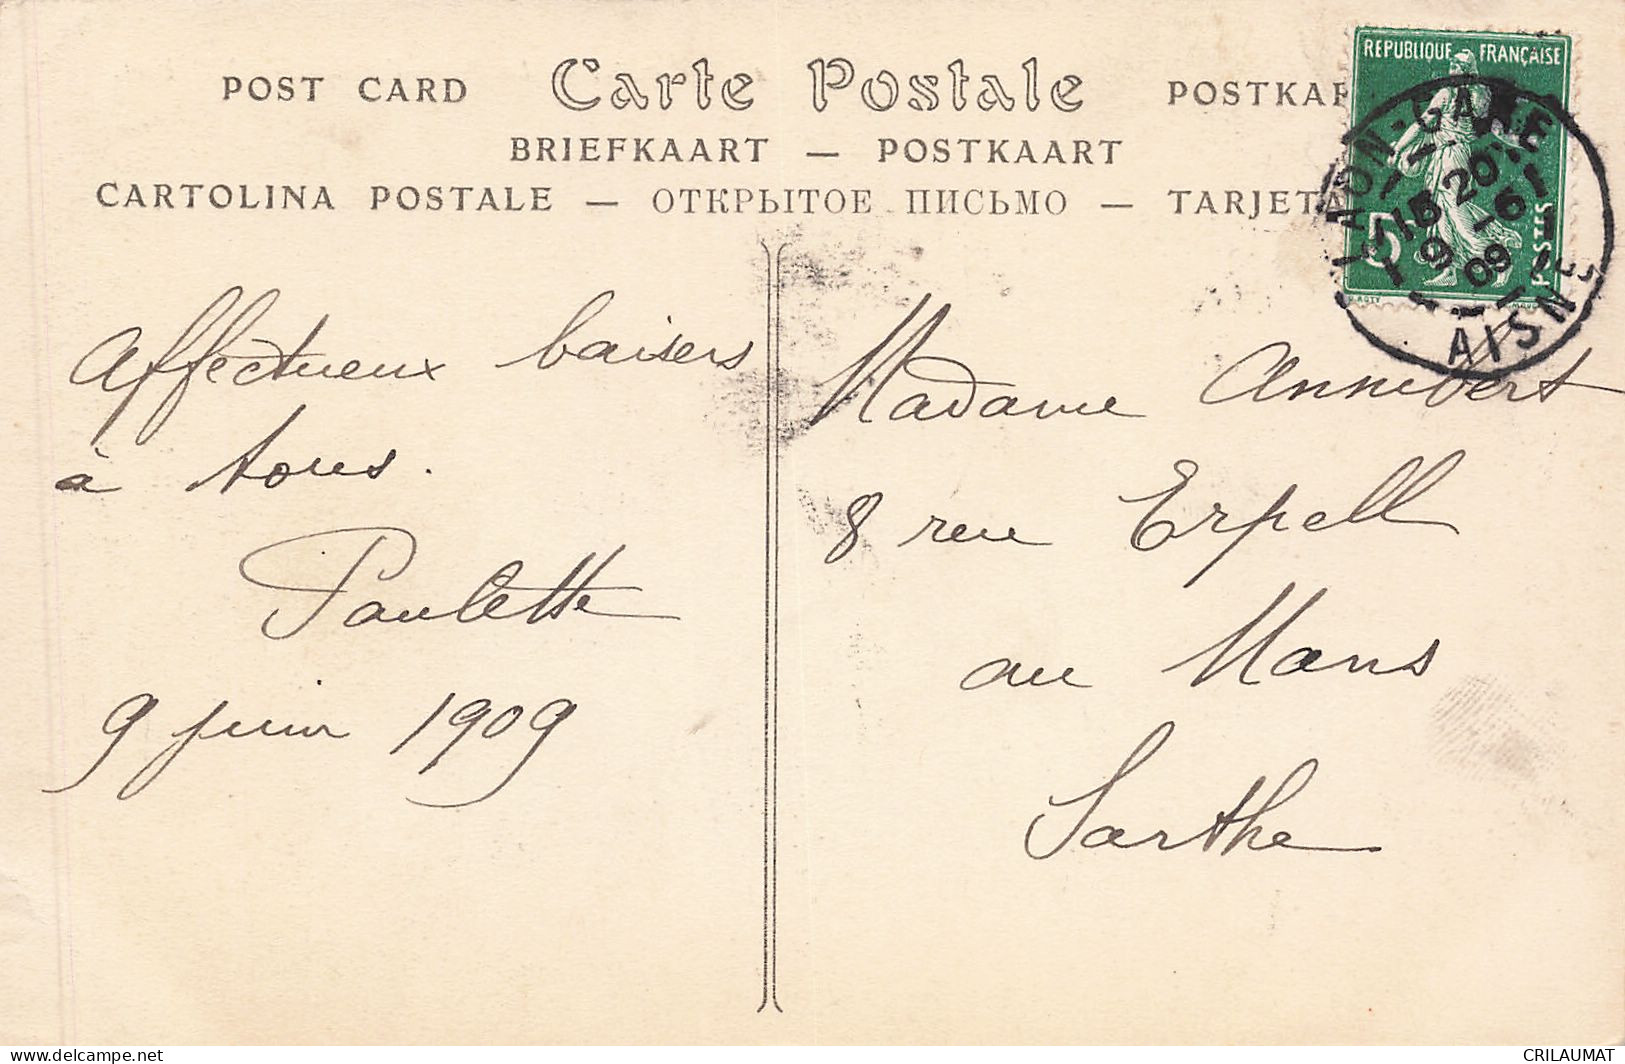 POST CARD Carte Postale POSTKAR
BRIEFKAART — POSTKAART
CARTOLINA POSTALE — ОТКРЫТОЕ ПИСЬМО — TARJETA
REPUBLIQUE FRANÇAISE
5c
POSTES
LAON-GARE
15 20
9 - 6
09
AISNE
Affectueux baisers
à tous.
Paulette
9 juin 1909
Madame Annebert
8 rue Erpell
au Mans
Sarthe
www.delcampe.net
CRILAUMAT